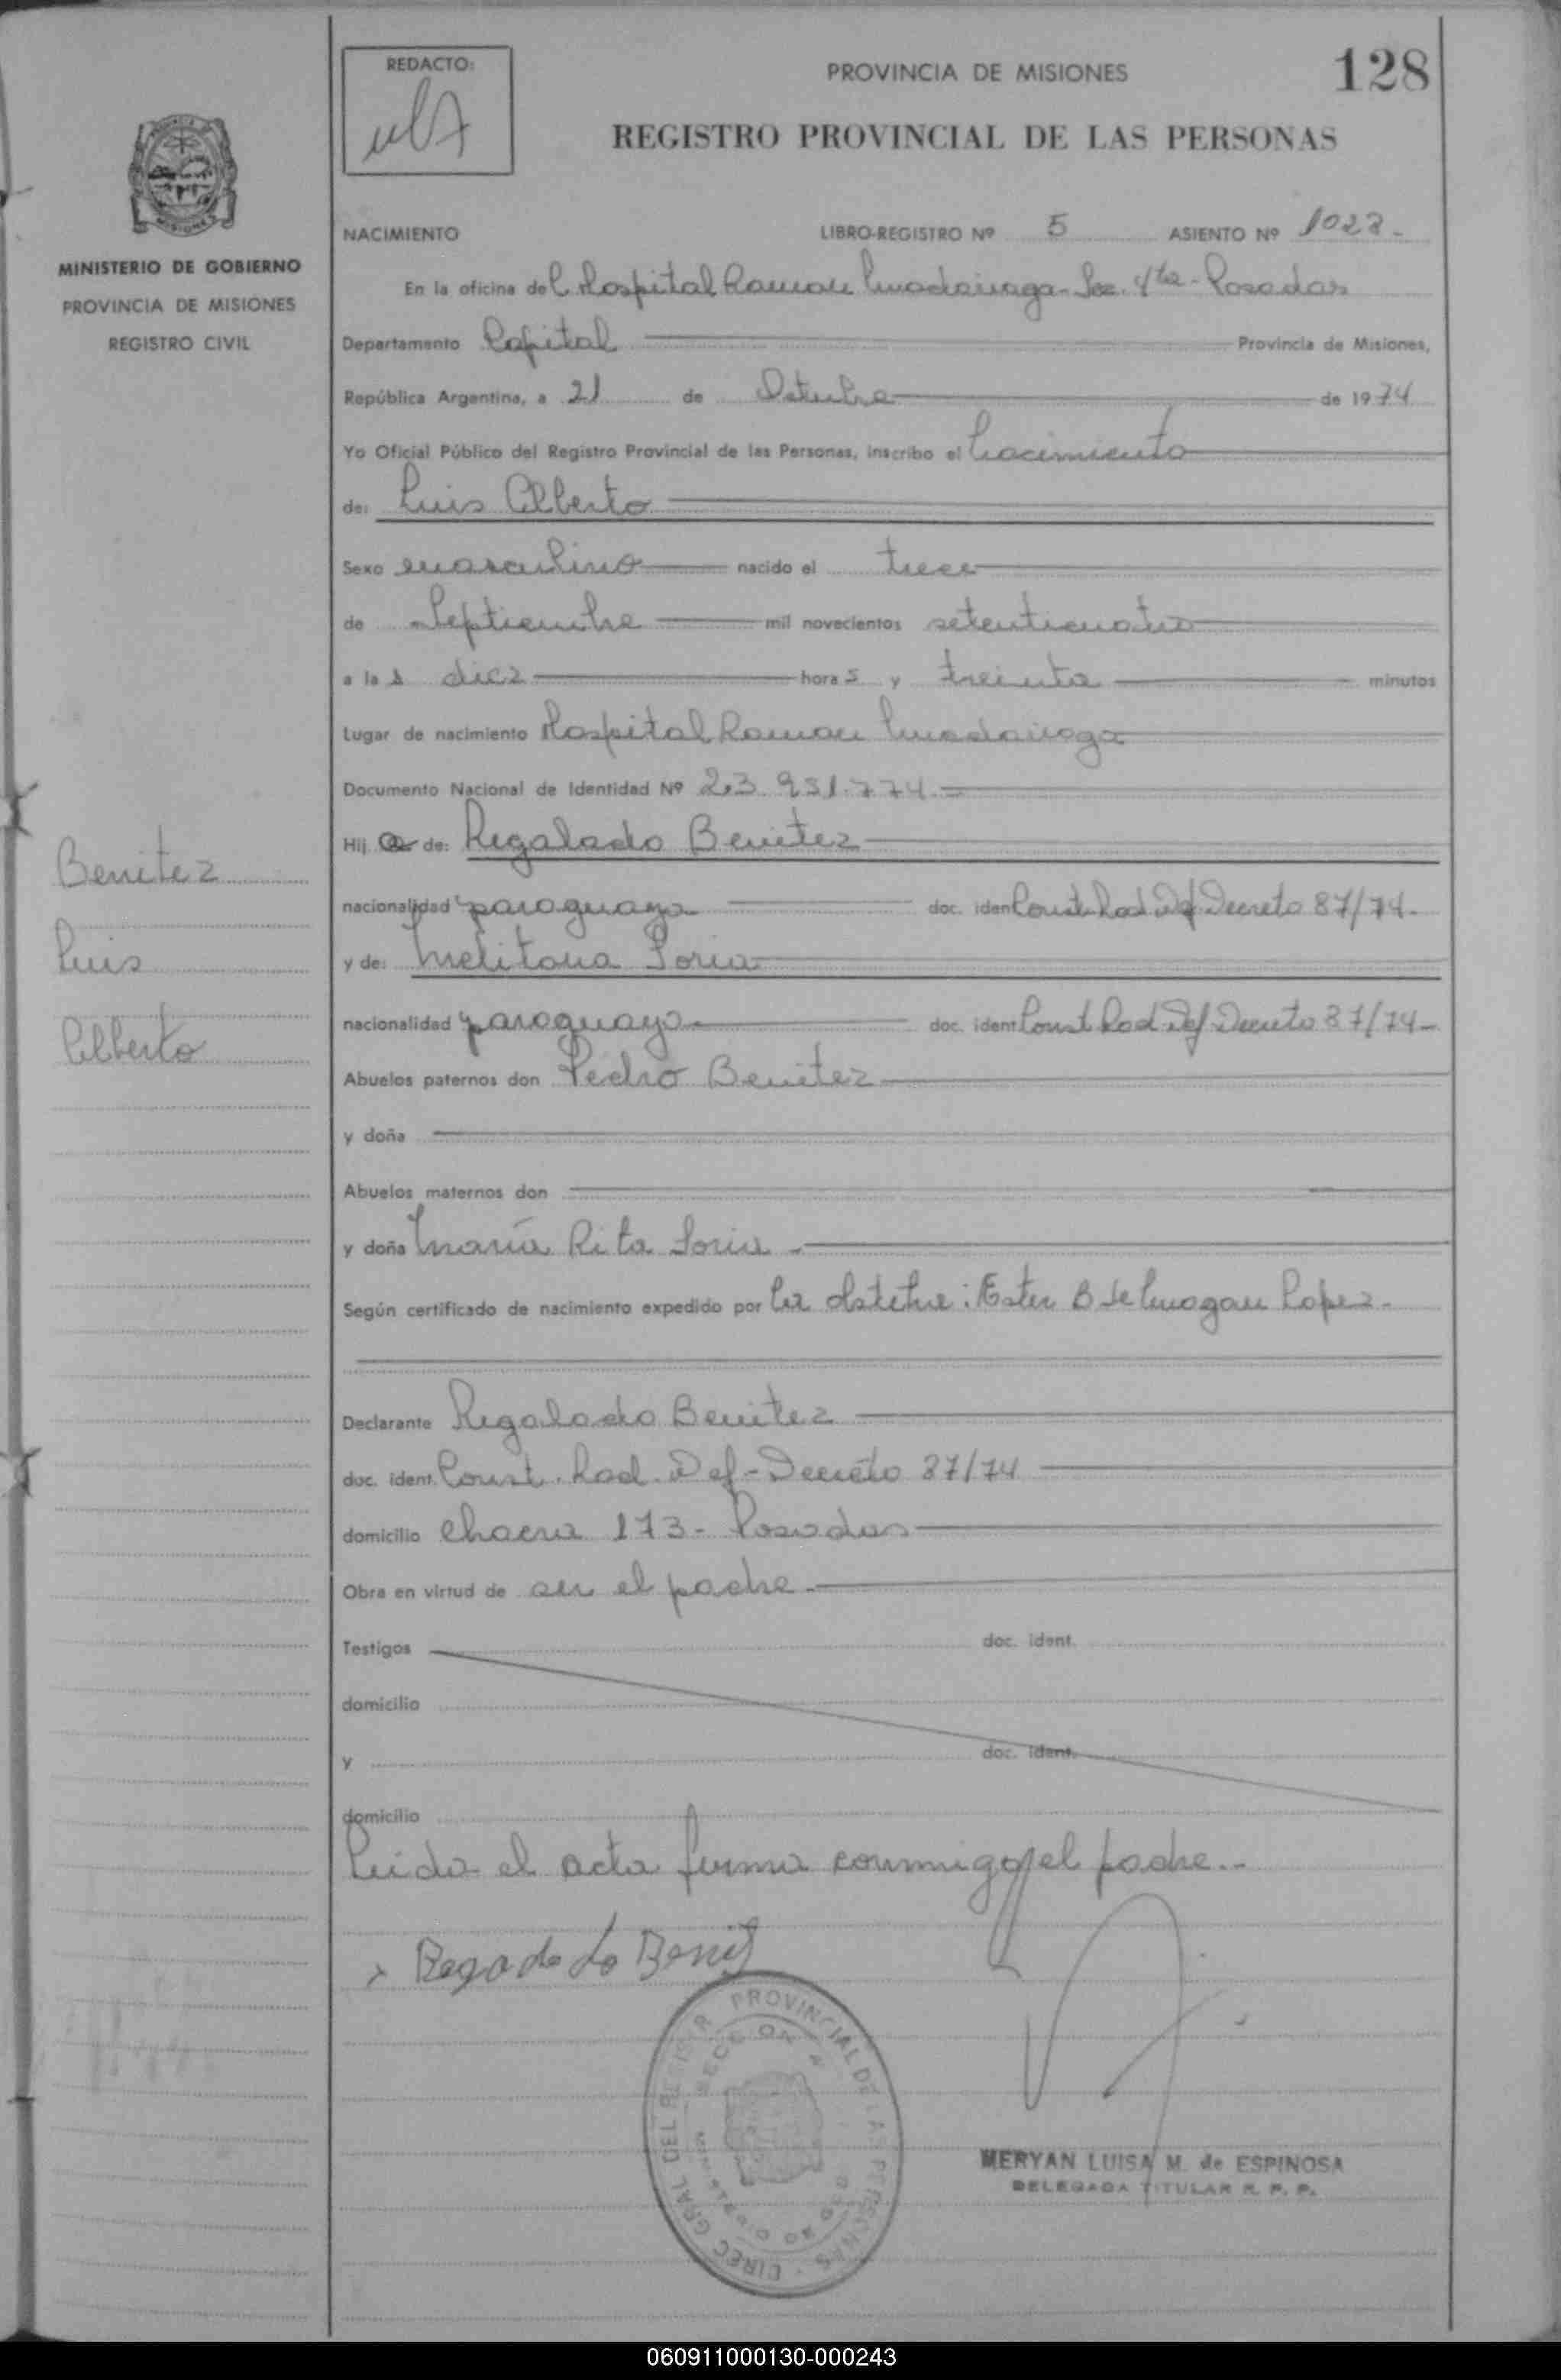 REDACTO:
PROVINCIA DE MISIONES
128
REGISTRO PROVINCIAL DE LAS PERSONAS
MINISTERIO DE GOBIERNO
PROVINCIA DE MISIONES
REGISTRO CIVIL
NACIMIENTO LIBRO-REGISTRO Nº 5 ASIENTO Nº 1028.-
En la oficina del Hospital Ramon Madariaga - Sec. 4ta - Posadas
Departamento Capital Provincia de Misiones,
República Argentina, a 21 de Octubre de 1974
Yo Oficial Público del Registro Provincial de las Personas, inscribo el Nacimiento
de: Luis Alberto
Sexo masculino nacido el trece
de Septiembre mil novecientos setenticuatro
a las diez horas y treinta minutos
Lugar de nacimiento Hospital Ramon Madariaga
Documento Nacional de Identidad Nº 23.931.774.-
Hij o de: Regalado Benitez
nacionalidad paraguaya doc. iden Const. Rad. Def. Decreto 87/74.-
y de: Melitona Soria
nacionalidad paraguaya doc. ident Const Rad Def Decreto 87/74-
Abuelos paternos don Pedro Benitez
y doña
Abuelos maternos don
y doña María Rita Soria.-
Según certificado de nacimiento expedido por la obstetra: Ester B de Lopez.-
Declarante Regalado Benitez
doc. ident. Const. Rad. Def - Decreto 87/74
domicilio Chacra 173 - Posadas
Obra en virtud de ser el padre.-
Testigos doc. ident.
domicilio
y doc. ident.
domicilio
Leida el acta firma conmigo el padre.-
Benitez
Luis
Alberto
DIREC GRAL DEL REGISTR PROVINCIAL DE LAS PERSONAS
MERYAN LUISA M. de ESPINOSA
DELEGADA TITULAR R. P. P.
060911000130-000243